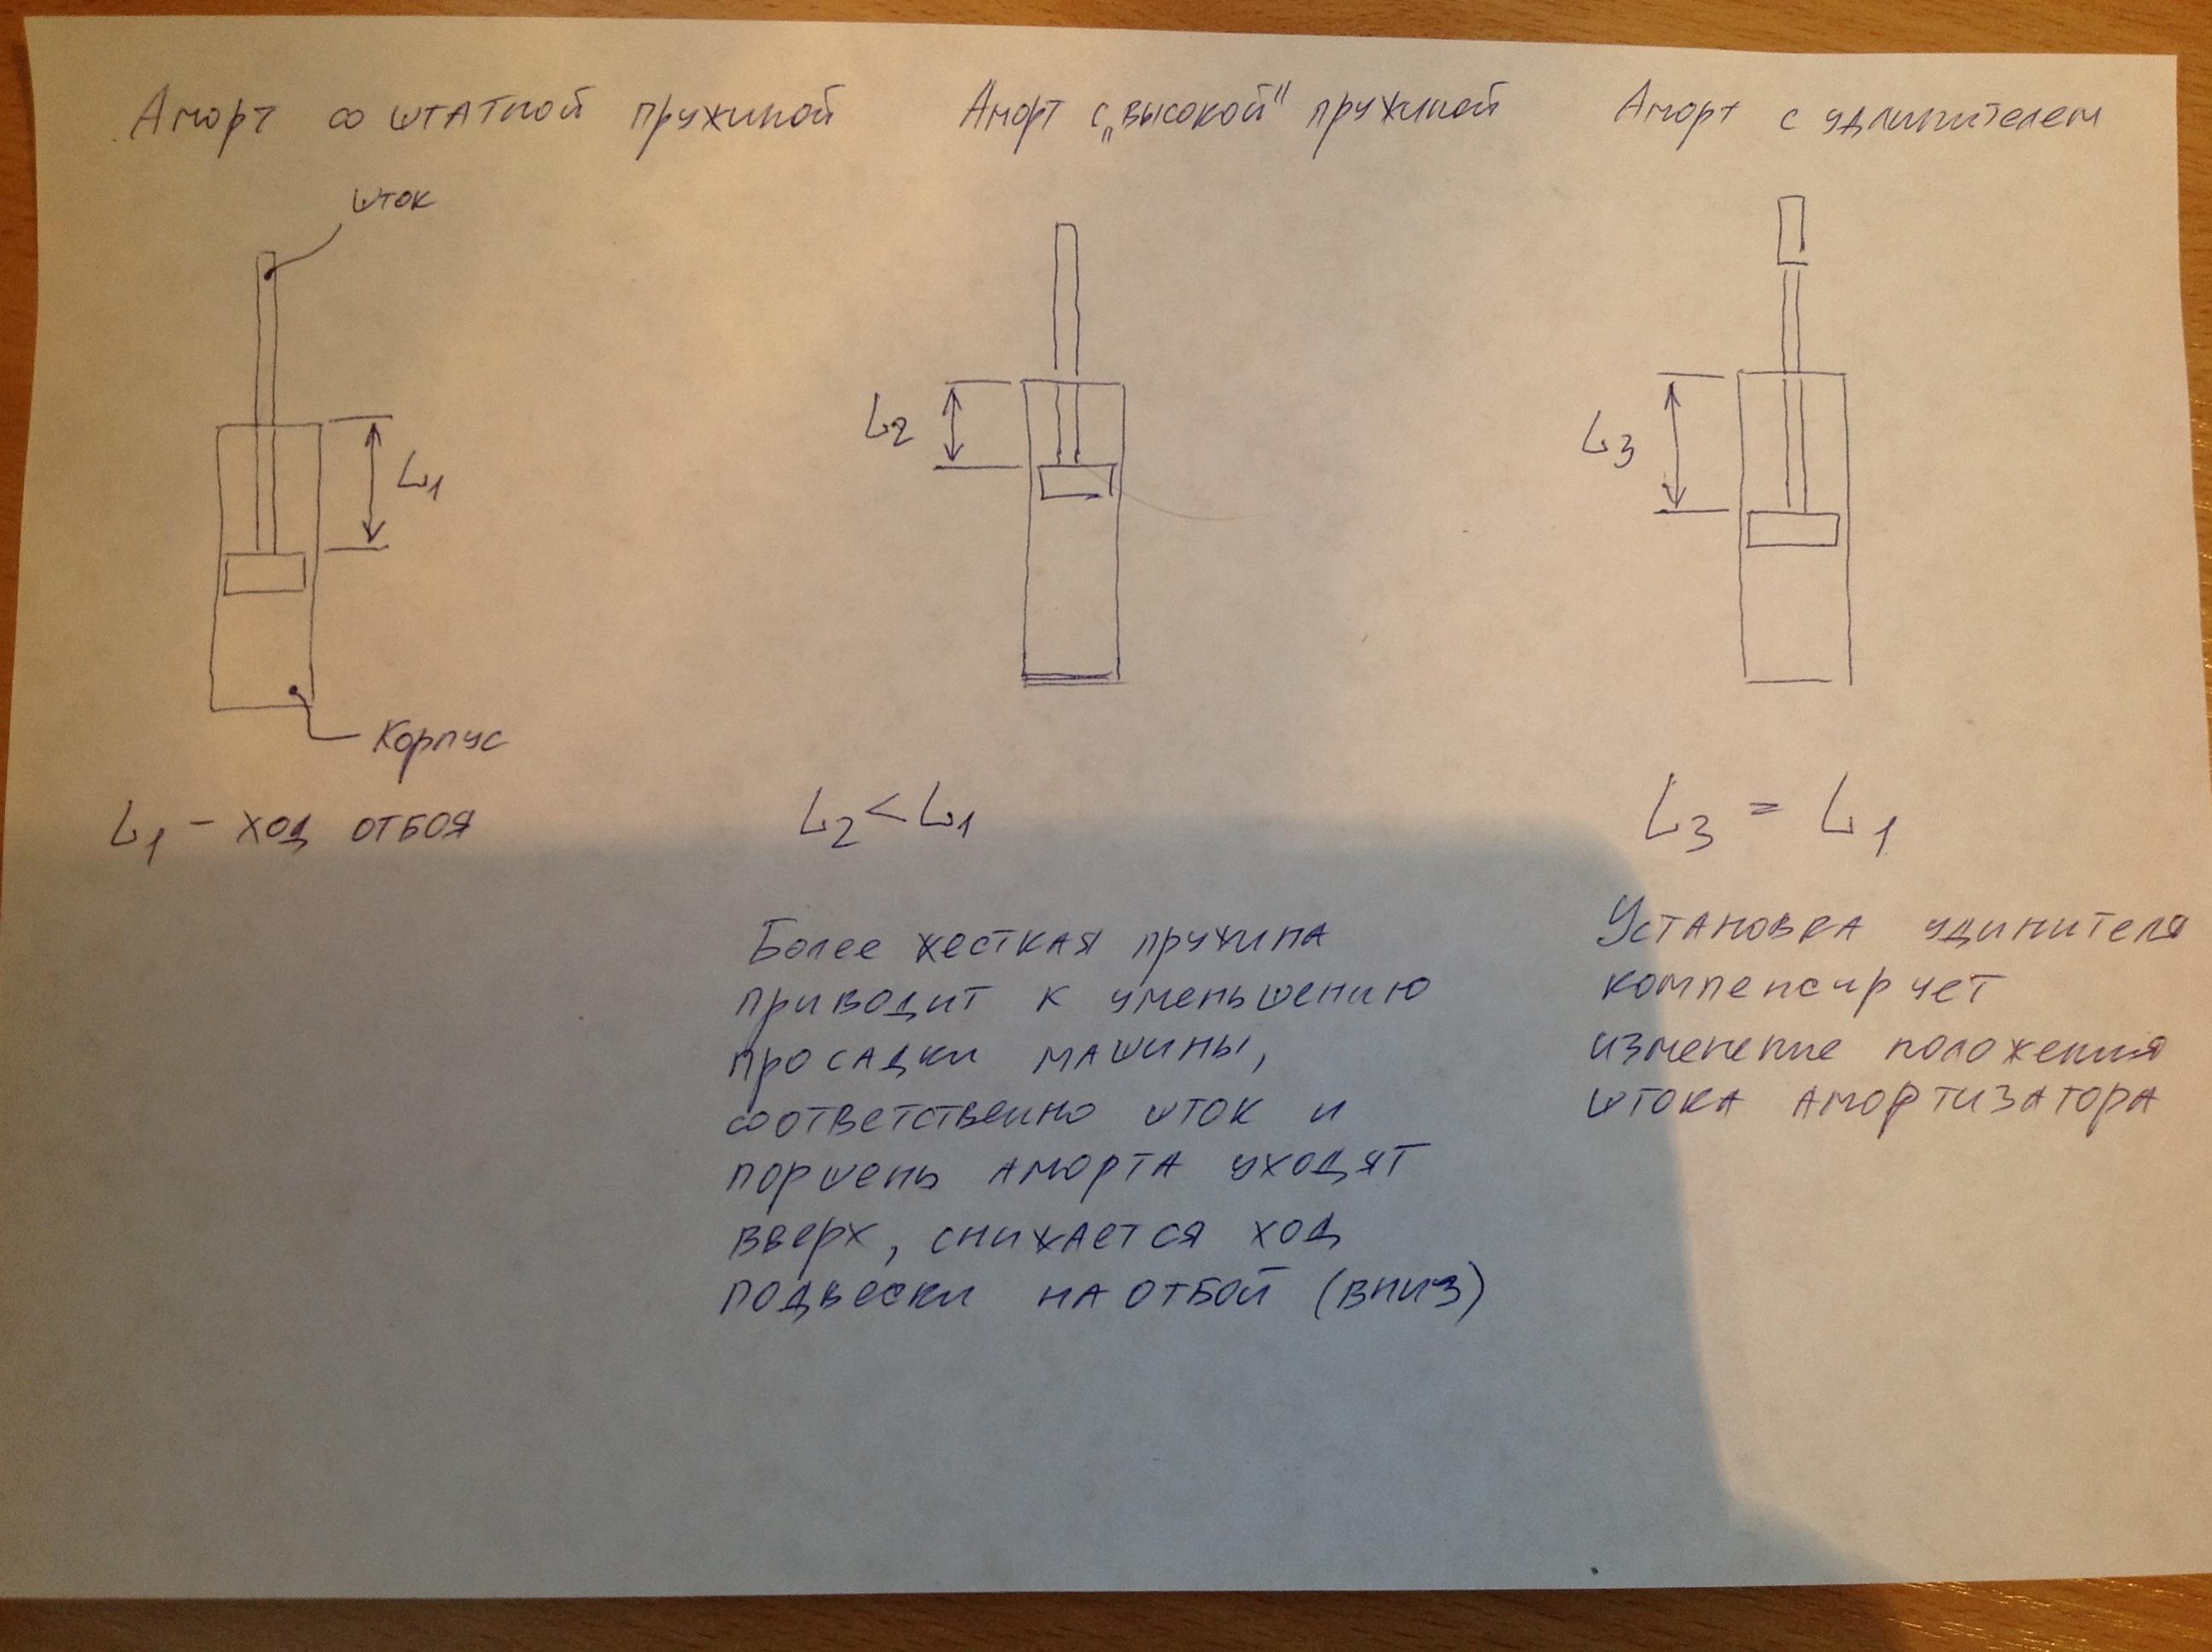 Аморт со штатной пружиной
Аморт с „высокой" пружиной
Аморт с удлинителем
шток
L1
Корпус
L1 – ход отбоя
L2
L2 < L1
Более жесткая пружина
приводит к уменьшению
просадки машины,
соответственно шток и
поршень аморта уходят
вверх, снижается ход
подвески на отбой (вниз)
L3
L3 = L1
Установка удинителя
компенсирует
изменение положения
штока амортизатора